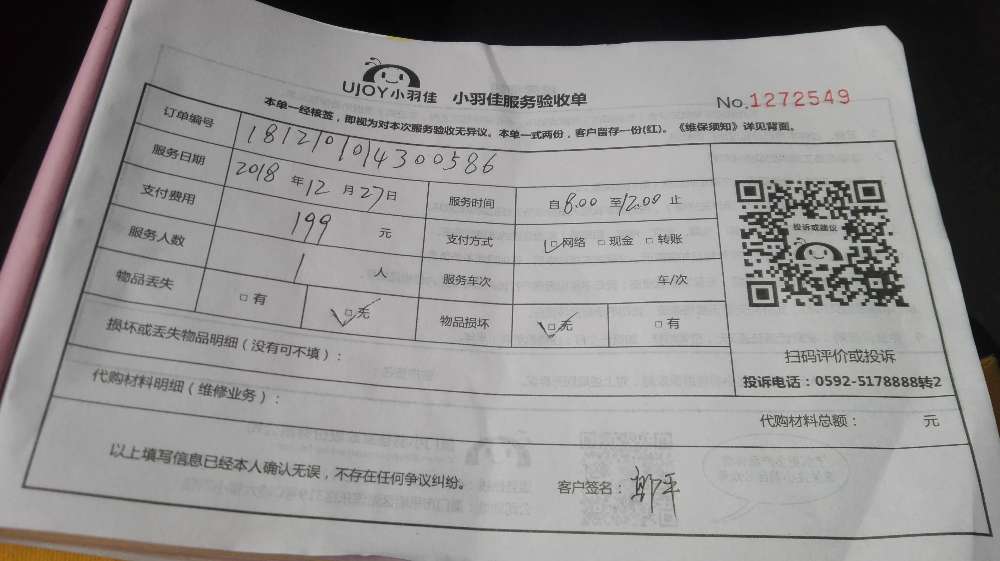 UJOY小羽佳 小羽佳服务验收单 No.1272549
本单一经核签，即视为对本次服务验收无异议。本单一式两份，客户留存一份(红)。《维保须知》详见背面。
订单编号 181210104300586
服务日期 2018 年 12 月 27 日 服务时间 自 8.00 至 12.00 止
支付费用 199 元 支付方式 网络 现金 转账
服务人数 1 人 服务车次 车/次
物品丢失 有 无 物品损坏 无 有
投诉或建议
扫码评价或投诉
投诉电话：0592-5178888转2
损坏或丢失物品明细（没有可不填）：
代购材料明细（维修业务）：
代购材料总额： 元
以上填写信息已经本人确认无误，不存在任何争议纠纷。
客户签名：